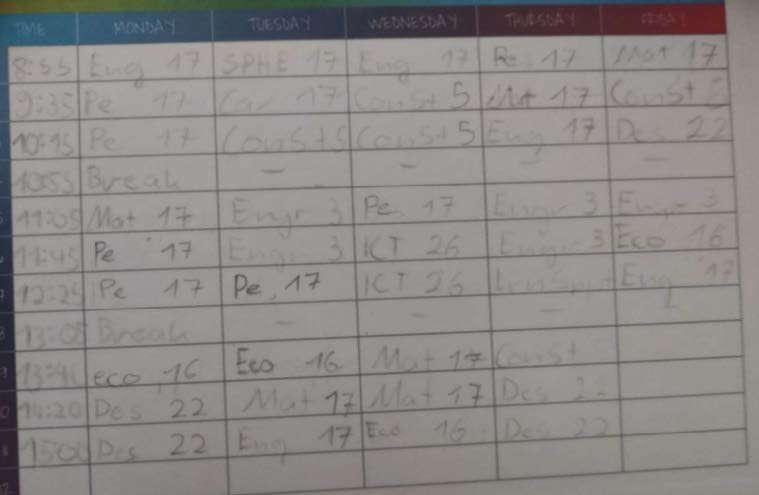 TIME MONDAY TUESDAY WEDNESDAY THURSDAY FRIDAY
8:55 Eng 17 SPHE 17 Eng 17 Pe 17 Mat 17
9:35 Pe 17 Car 17 Const 5 Mat 17 Const 5
10:15 Pe 17 Const 5 Const 5 Eng 17 Des 22
10:55 Break - - - -
11:05 Mat 17 Engr 3 Pe 17 Engr 3 Engr 3
11:45 Pe 17 Engr 3 ICT 26 Engr 3 Eco 16
12:25 Pe 17 Pe, 17 ICT 26 Eng 17
13:05 Break - - - -
13:40 eco 16 Eco 16 Mat 17 Const
14:20 Des 22 Mat 17 Mat 17 Des
1500 Des 22 Eng 17 Eco 16 Des 22